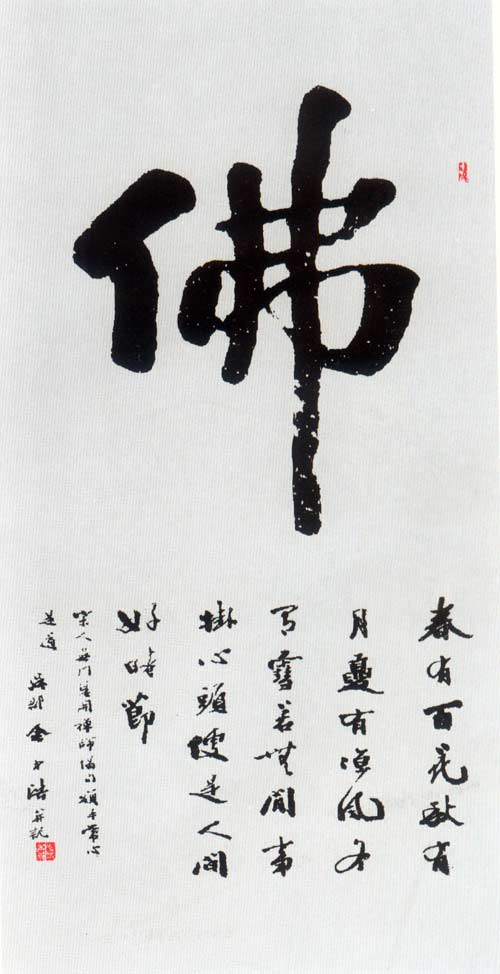 佛
春有百花秋有
月夏有涼風冬
有雪若無閒事
掛心頭便是人間
好時節
宋人無門慧開禪師偈句頌平常心
是道